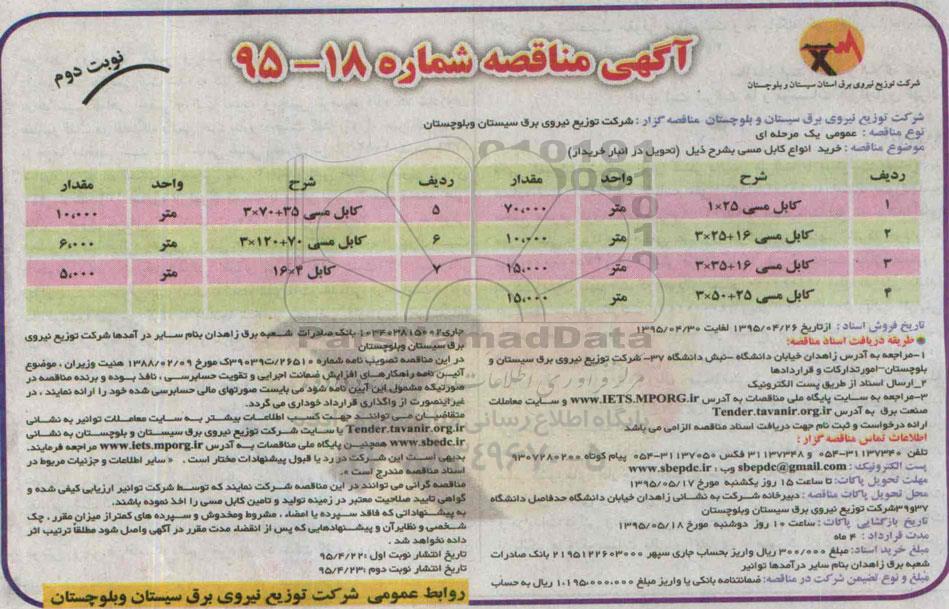 شرکت توزیع نیروی برق استان سیستان و بلوچستان
آگهی مناقصه شماره ۱۸- ۹۵
نوبت دوم
شرکت توزیع نیروی برق سیستان و بلوچستان مناقصه گزار : شرکت توزیع نیروی برق سیستان وبلوچستان
نوع مناقصه : عمومی یک مرحله ای
موضوع مناقصه : خرید انواع کابل مسی بشرح ذیل (تحویل در انبار خریدار)
ردیف شرح واحد مقدار ردیف شرح واحد مقدار
۱ کابل مسی ۲۵×۱ متر ۷۰،۰۰۰ ۵ کابل مسی ۳۵+۷۰×۳ متر ۱۰،۰۰۰
۲ کابل مسی ۱۶+۲۵×۳ متر ۱۰،۰۰۰ ۶ کابل مسی ۷۰+۱۲۰×۳ متر ۶،۰۰۰
۳ کابل مسی ۱۶+۳۵×۳ متر ۱۵،۰۰۰ ۷ کابل ۴×۱۶ متر ۵،۰۰۰
۴ کابل مسی ۲۵+۵۰×۳ متر ۱۵،۰۰۰
تاریخ فروش اسناد : ازتاریخ ۱۳۹۵/۰۴/۲۶ لغایت ۱۳۹۵/۰۴/۳۰
طریقه دریافت اسناد مناقصه:
۱-مراجعه به آدرس زاهدان خیابان دانشگاه -نبش دانشگاه ۳۷- شرکت توزیع نیروی برق سیستان و
بلوچستان-امورتدارکات و قراردادها
۲_ارسال اسناد از طریق پست الکترونیک
۳-مراجعه به سایت پایگاه ملی مناقصات به آدرس www.IETS.MPORG.ir و سایت معاملات
صنعت برق به آدرس Tender.tavanir.org.ir
ارائه درخواست و ثبت نام جهت دریافت اسناد مناقصه الزامی می باشد
اطلاعات تماس مناقصه گزار :
تلفن ۳۱۱۳۷۳۴۰-۰۵۴ و ۳۱۱۳۷۳۴۸ فکس ۳۱۱۳۷۰۵۰-۰۵۴ پیام کوتاه ۹۳۰۷۲۸۰۲۰۰
پست الکترونیک : sbepdc@gmail.com وب : www.sbepdc.ir
مهلت تحویل پاکات: تا ساعت ۱۵ روز یکشنبه مورخ ۱۳۹۵/۰۵/۱۷
محل تحویل پاکات مناقصه : دبیرخانه شرکت به نشانی زاهدان خیابان دانشگاه حدفاصل دانشگاه
۳۷و۳۹شرکت توزیع نیروی برق سیستان وبلوچستان
تاریخ بازگشایی پاکات : ساعت ۱۰ روز دوشنبه مورخ ۱۳۹۵/۰۵/۱۸
مدت قرارداد : ۴ ماه
مبلغ خرید اسناد: مبلغ ۳۰۰/۰۰۰ ریال واریز بحساب جاری سپهر ۲۱۹۵۱۲۲۶۰۳۰۰۰ بانک صادرات
شعبه برق زاهدان بنام سایر درآمدها توانیر
مبلغ و نوع تضمین شرکت در مناقصه: ضمانتنامه بانکی یا واریز مبلغ ۱،۱۹۵،۰۰۰،۰۰۰ ریال به حساب
جاری۰۱۰۳۴۰۳۸۱۵۰۰۲ بانک صادرات شعبه برق زاهدان بنام سایر در آمدها شرکت توزیع نیروی
برق سیستان وبلوچستان
در این مناقصه تصویب نامه شماره ۲۶۵۱۰/ت۳۹۰۳۹ک مورخ ۱۳۸۸/۰۲/۰۹ هئیت وزیران ، موضوع
آئین نامه راهکارهای افزایش ضمانت اجرایی و تقویت حسابرسی ، نافذ بوده و برنده مناقصه در
صورتیکه مشمول این آیین نامه شود می بایست صورتهای مالی حسابرسی شده خود را ارائه نمایند ، در
غیراینصورت از واگذاری قرارداد خودداری می گردد.
متقاضیان می توانند جهت کسب اطلاعات بیشتر به سایت معاملات توانیر به نشانی
Tender.tavanir.org.ir یا سایت شرکت توزیع نیروی برق سیستان و بلوچستان به نشانی
www.sbedc.ir همچنین پایگاه ملی مناقصات به آدرس www.iets.mporg.ir مراجعه فرمایند.
بدیهی است این شرکت در رد یا قبول پیشنهادات مختار است . « سایر اطلاعات و جزئیات مربوط در
اسناد مناقصه مندرج است ».
مناقصه گرانی می توانند در این مناقصه شرکت نمایند که توسط شرکت توانیر ارزیابی کیفی شده و
گواهی تایید صلاحیت معتبر در زمینه تولید و تامین کابل مسی را اخذ نموده باشند.
به پیشنهاداتی که فاقد سپرده یا امضاء ، مشروط ومخدوش و سپرده های کمتراز میزان مقرر ، چک
شخصی و نظایرآن و پیشنهادهایی که پس از انقضاء مدت مقرر در آگهی واصل شود مطلقا ترتیب اثر
داده نخواهد شد .
تاریخ انتشار نوبت اول :۹۵/۴/۲۲
تاریخ انتشار نوبت دوم :۹۵/۴/۲۳
روابط عمومی شرکت توزیع نیروی برق سیستان وبلوچستان